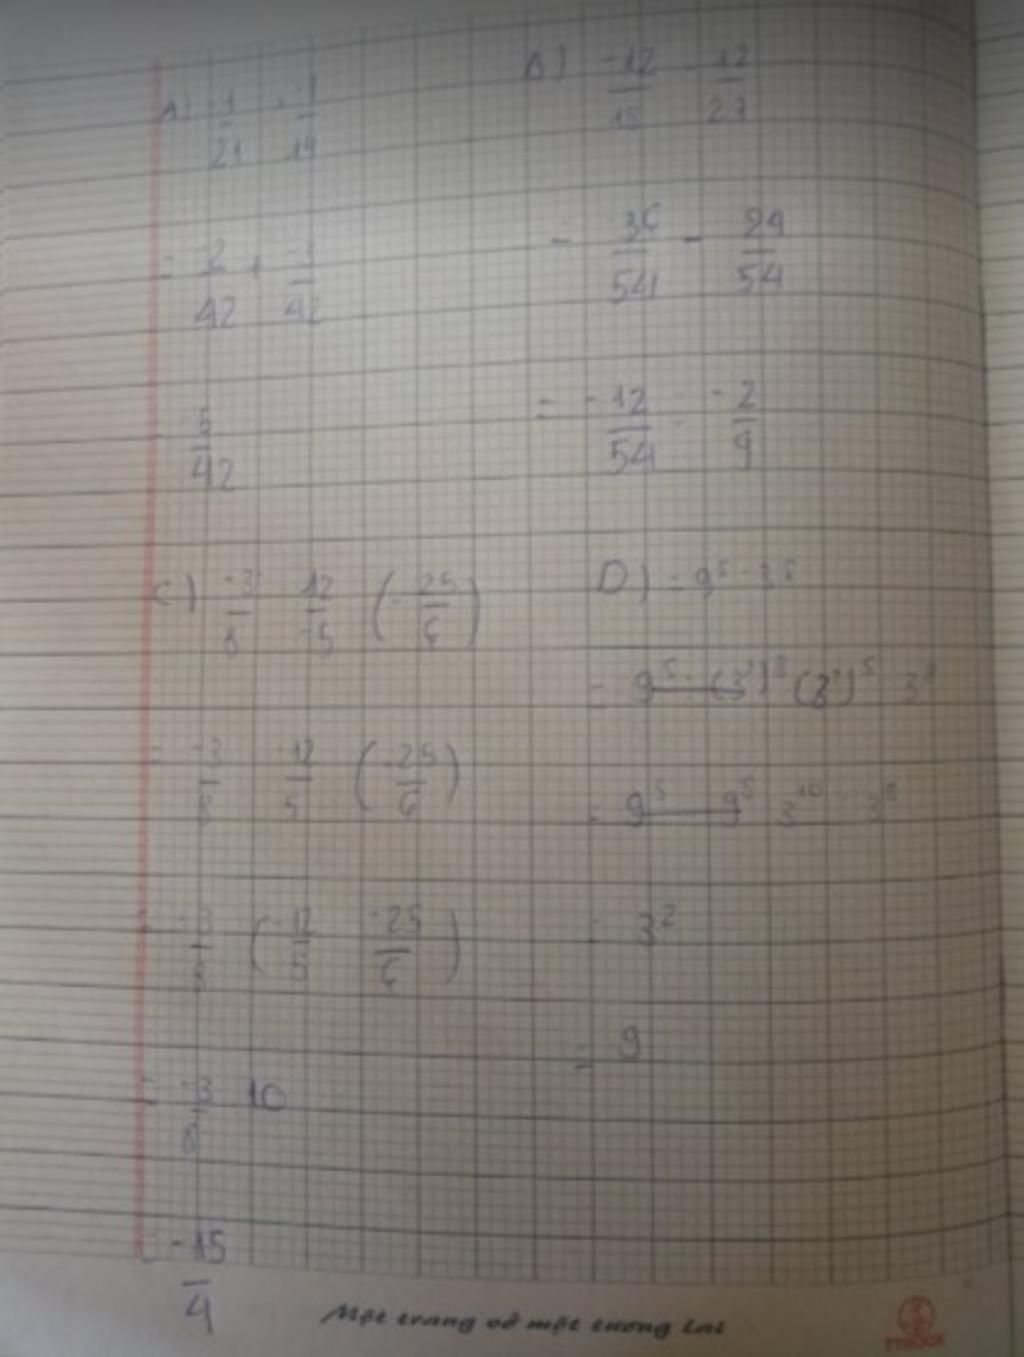 A) -1/21 + -1/14
= -2/42 + -3/42
5/42
B) -12/18 - 12/27
= 36/54 - 24/54
= -12/54 = -2/9
C) -3/8 · 12/-5 (-25/6)
= -3/8 -12/5 (-25/6)
= -3/8 (-12/5 -25/6)
= -3/8 10
= -15/4
D) = 9⁵ 3⁸
(3²)⁵ 3⁸
3¹⁰ 3⁸
= 3²
= 9
Một trang vở một tương lai
TTBOOK